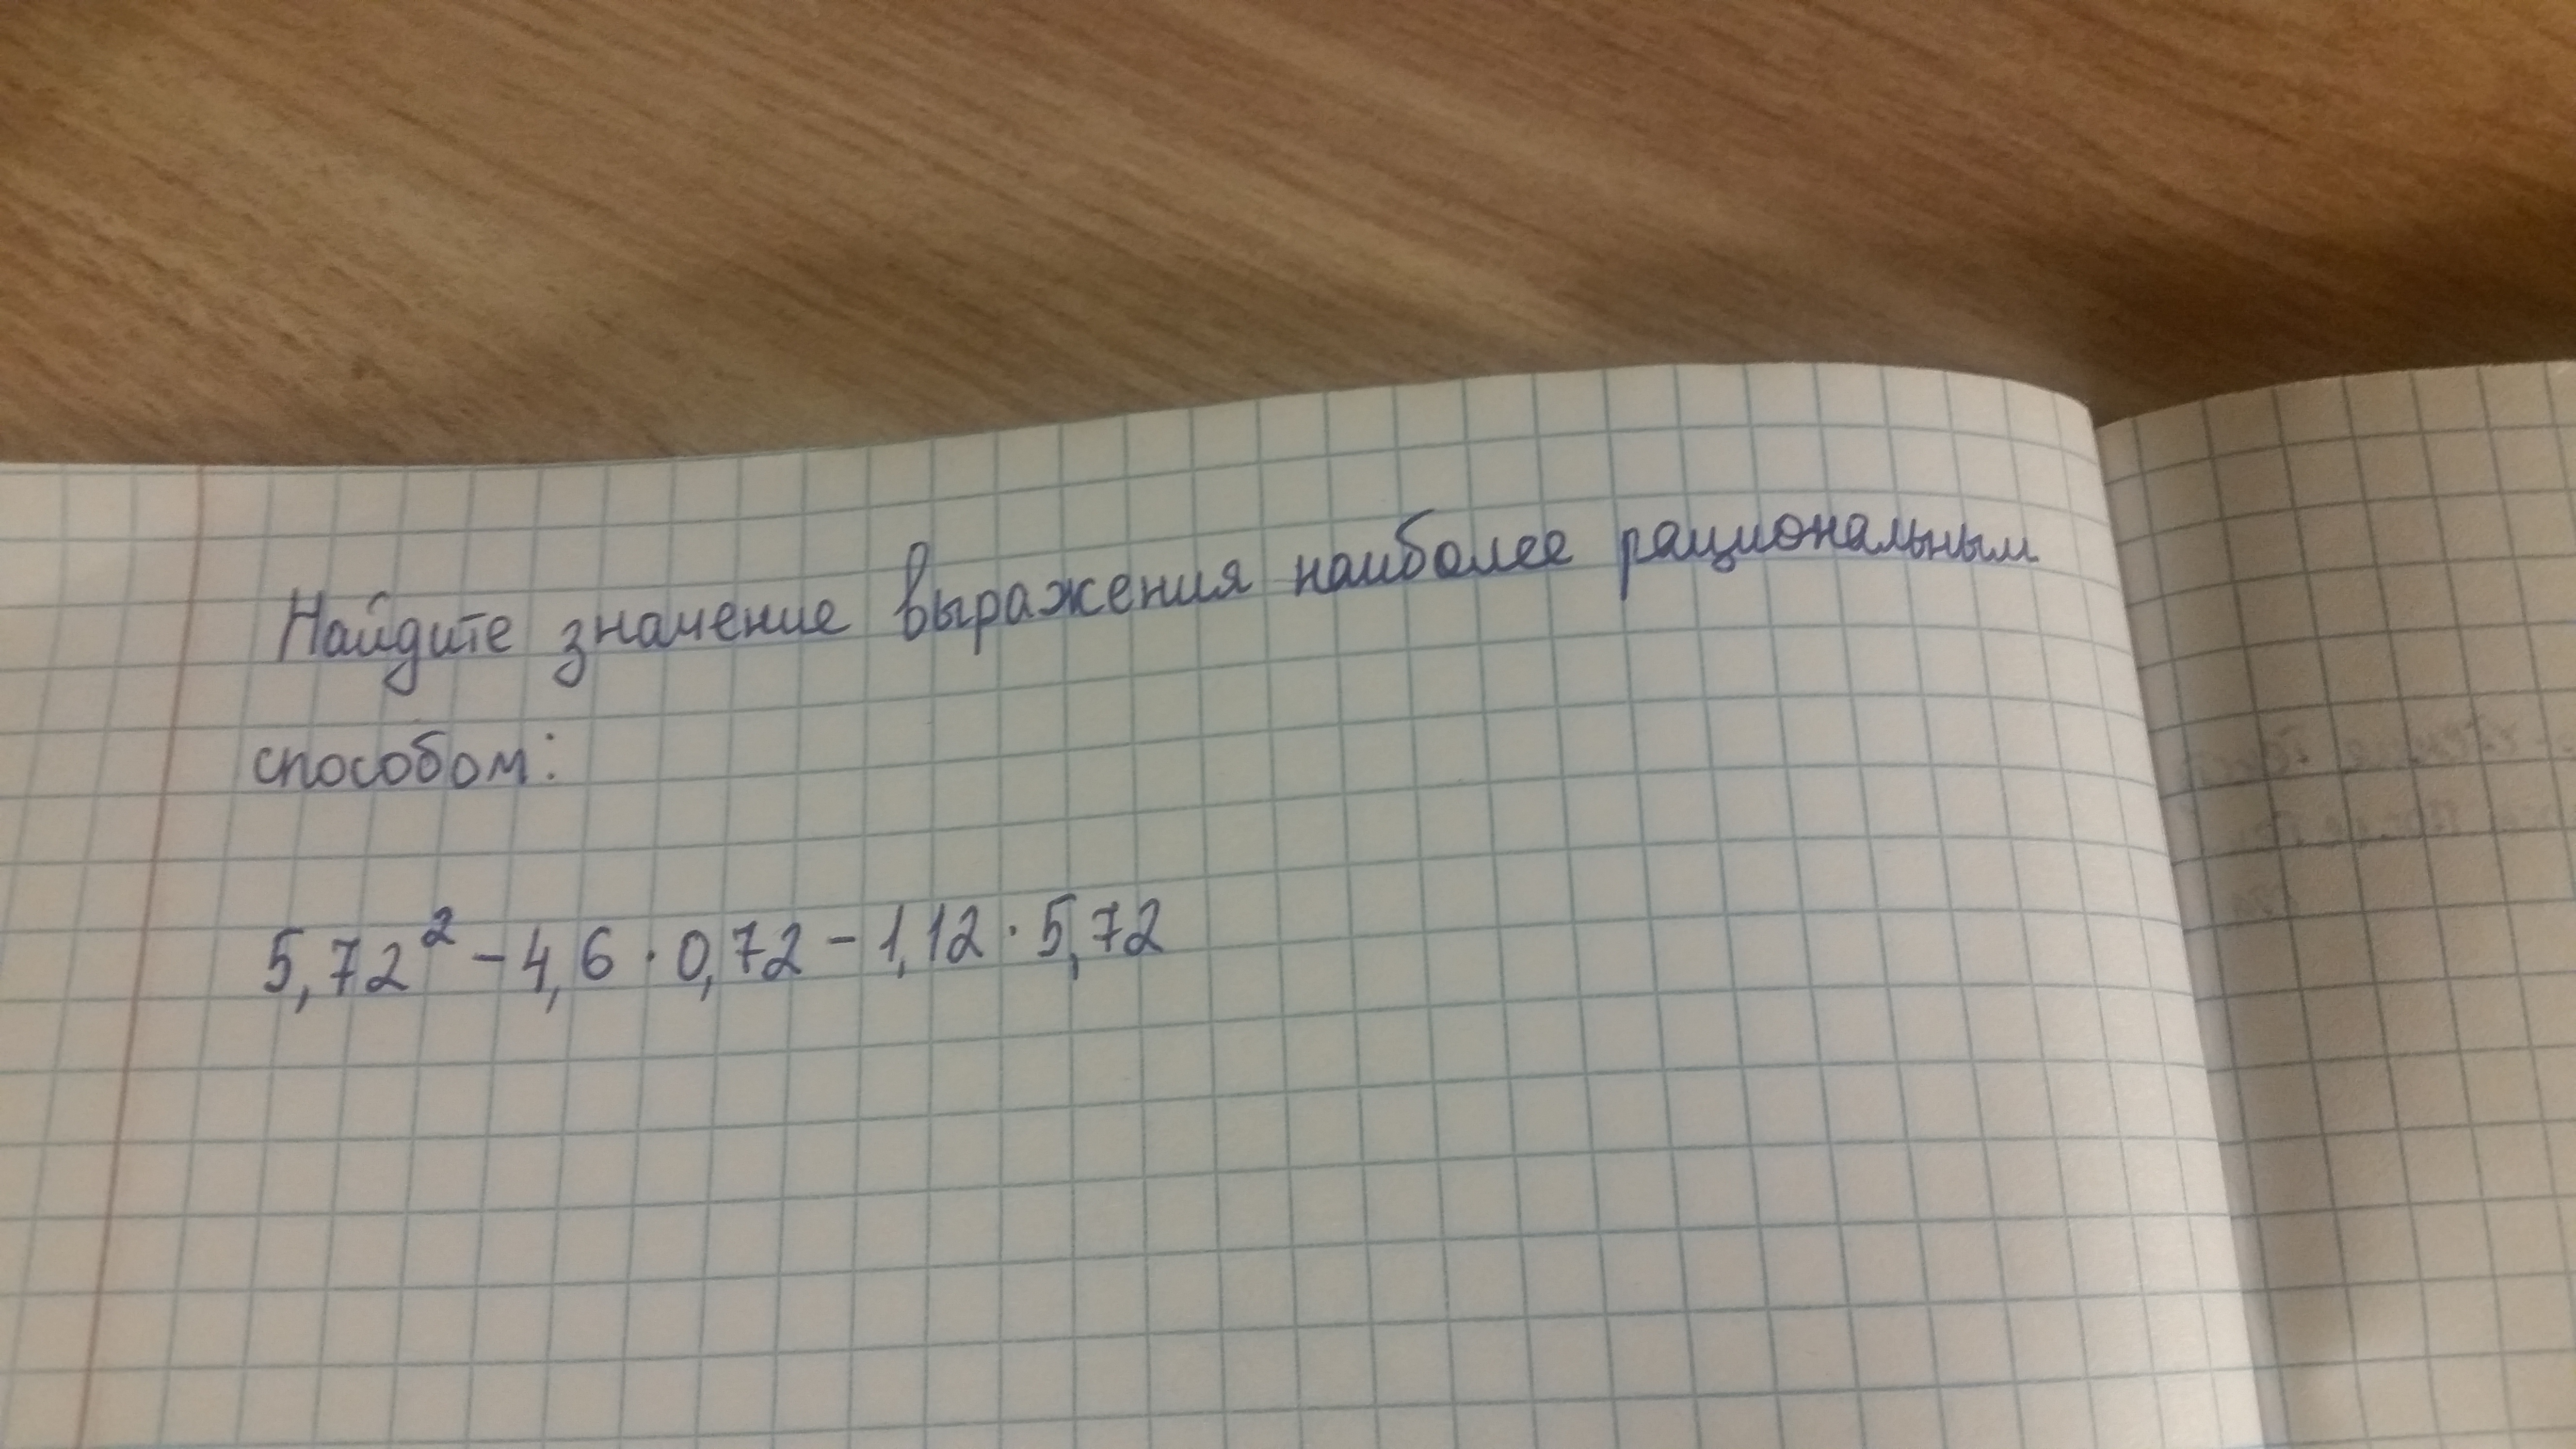 Найдите значение выражения наиболее рациональным
способом:
5,72² - 4,6 · 0,72 - 1,12 · 5,72